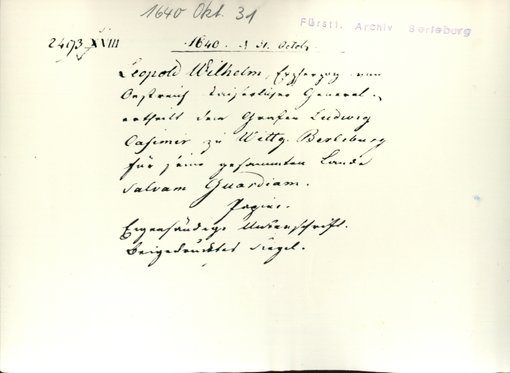 1640 Okt. 31
Fürstl. Archiv Berleburg
2493 XVIII
1640. d 31. Octob.
Leopold Wilhelm, Erzherzog von
Oestreich kaiserlicher General.
ertheilt dem Grafen Ludwig
Casimir zu Wittg. Berleburg
für seine gesammten Lande
Salvam Guardiam.
Papier.
Eigenhändige Unterschrift.
Beigedrucktes Siegel.